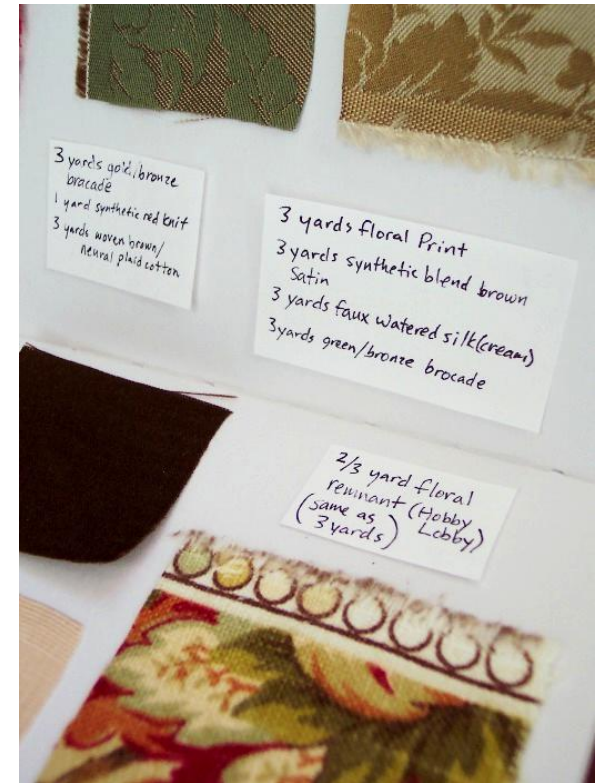 3 yards gold/bronze
bracade
1 yard synthetic red knit
3 yards woven brown/
neural plaid cotton
3 yards floral Print
3 yards synthetic blend brown
Satin
3 yards faux watered silk (cream)
3 yards green/bronze brocade
2/3 yard floral
remnant (Hobby
(same as Lobby)
3 yards)